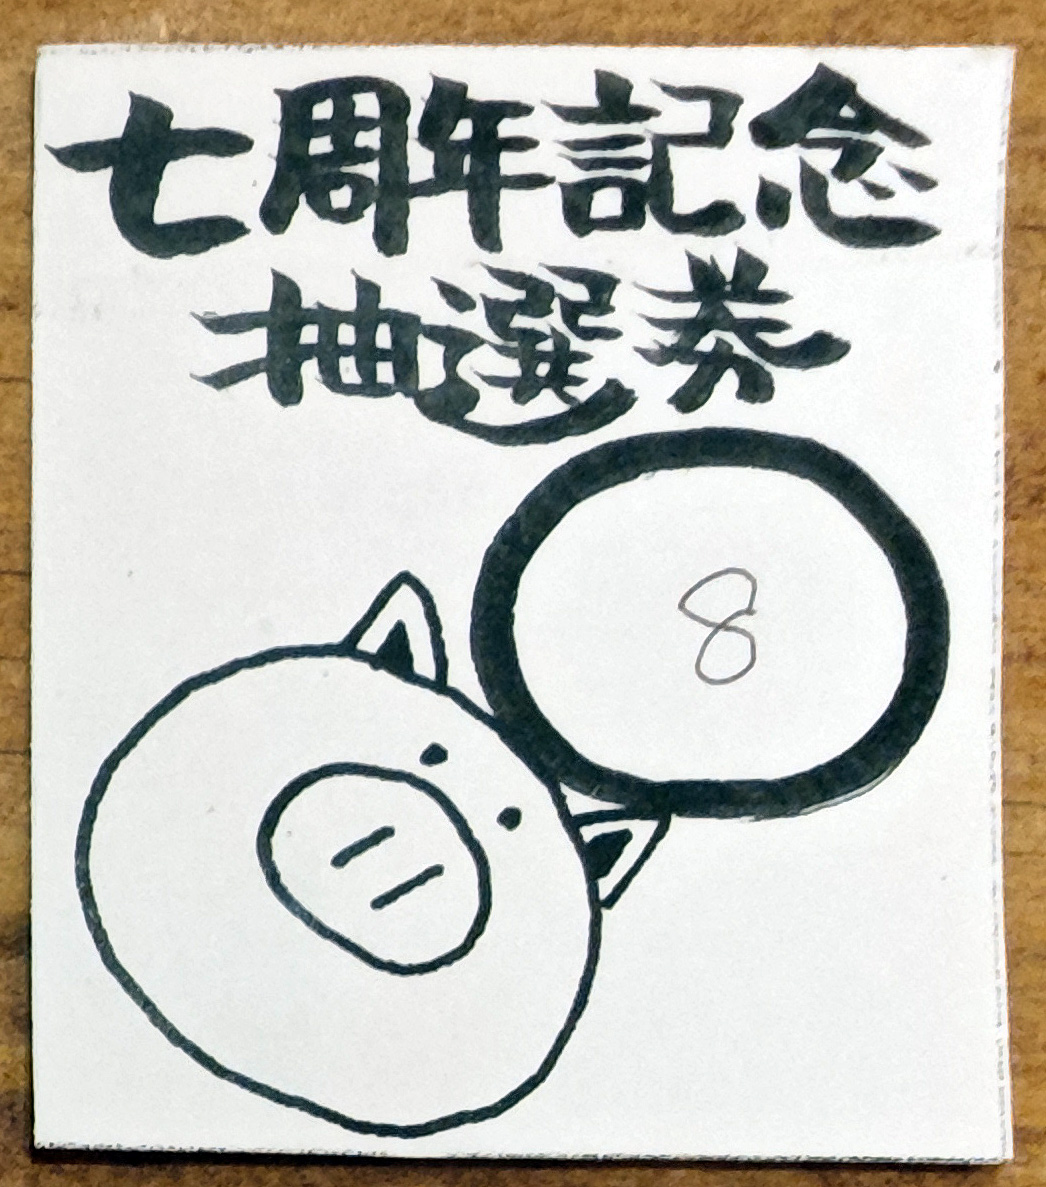 七周年記念
抽選券
8